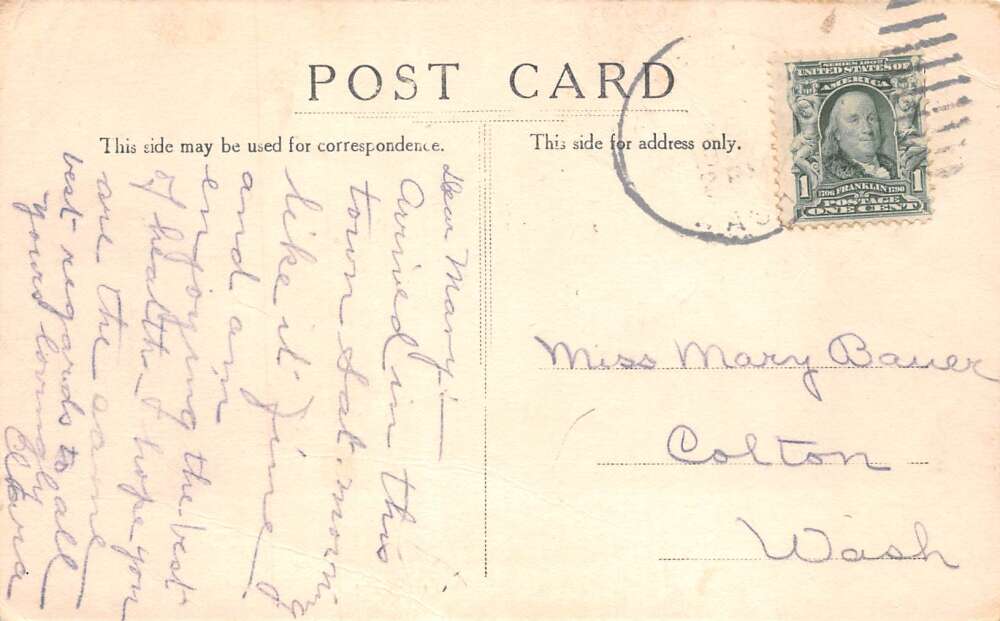 POST CARD
This side may be used for correspondence.
This side for address only.
SERIES 1902
UNITED STATES OF
AMERICA
1 1
1706 FRANKLIN 1790
POSTAGE
ONE CENT
WASH
Dear Mary:—
Arrived in this
town Sat. morning
like it fine
and am
enjoying the best
of health - I hope you
are the same
best regards to all
yours lovingly
Miss Mary Bauer
Colton
Wash